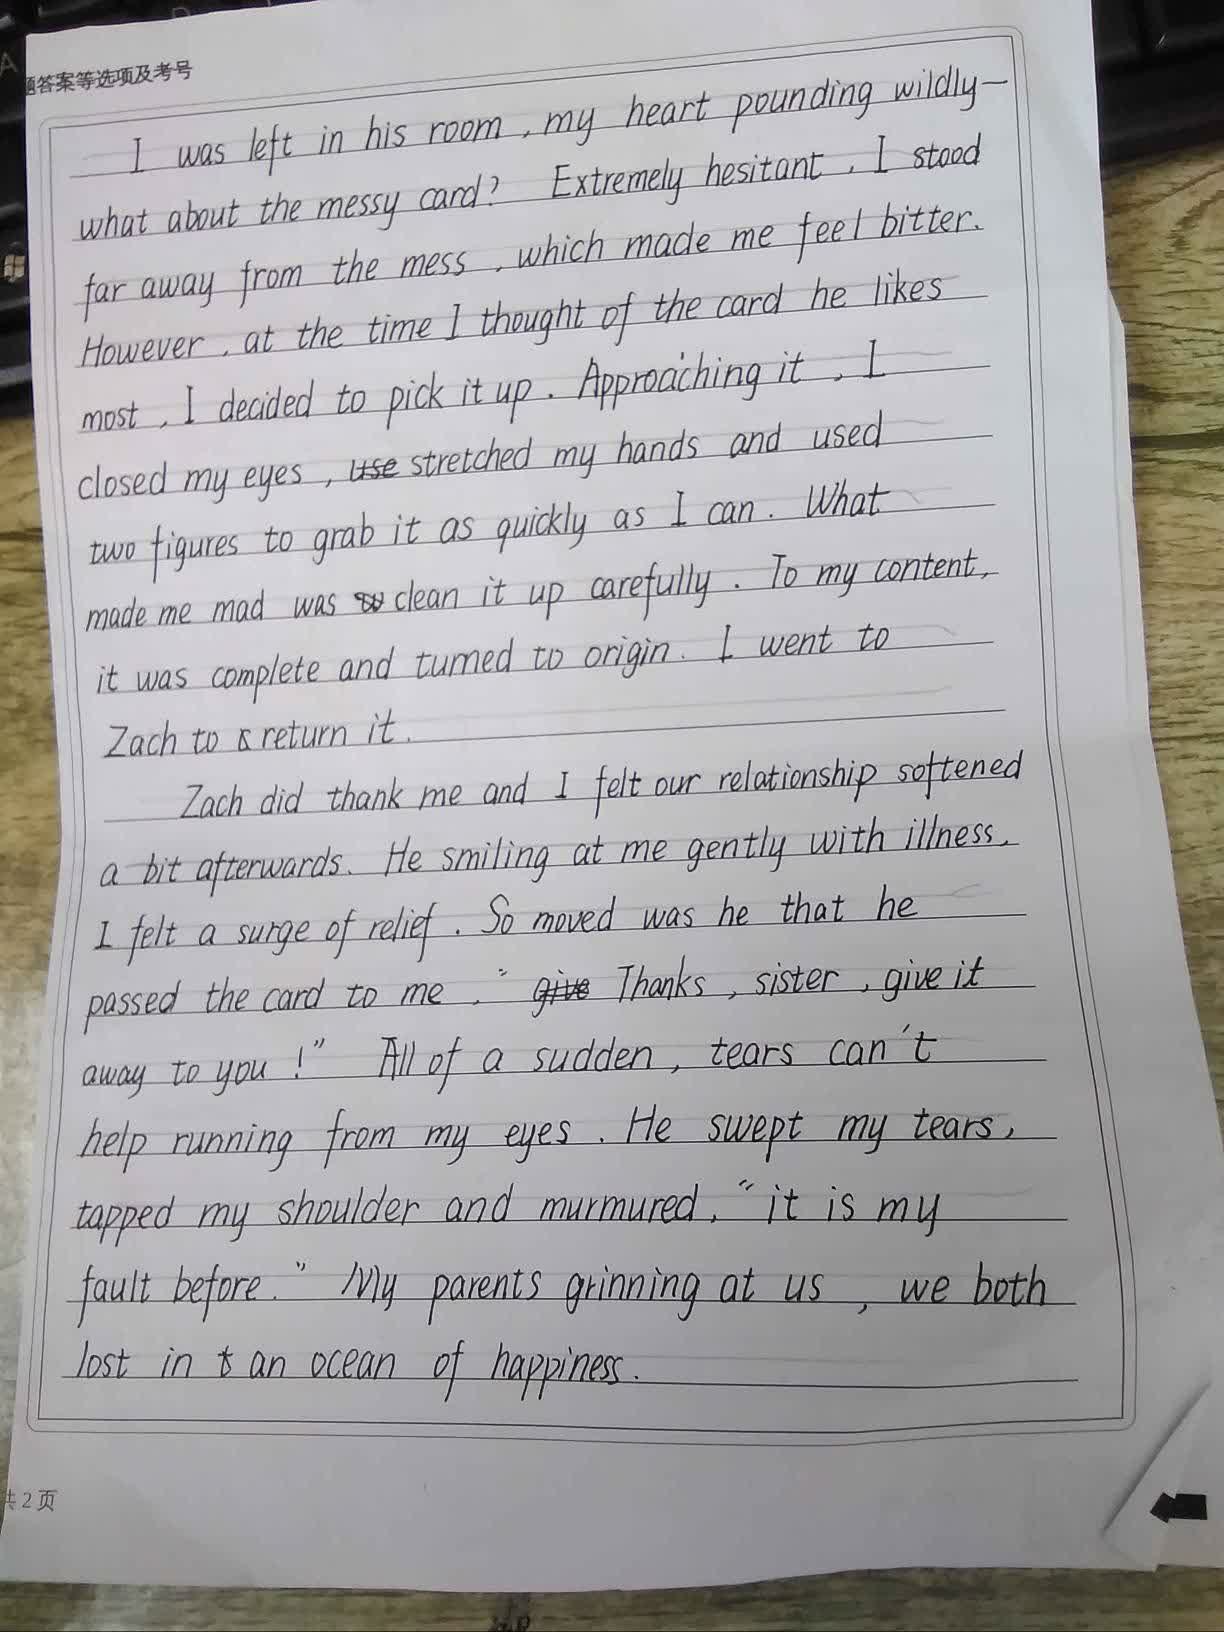 题答案等选项及考号
I was left in his room, my heart pounding wildly—
what about the messy card? Extremely hesitant, I stood
far away from the mess, which made me feel bitter.
However, at the time I thought of the card he likes
most, I decided to pick it up. Approaching it, I
closed my eyes, use stretched my hands and used
two figures to grab it as quickly as I can. What
made me mad was to clean it up carefully. To my content,
it was complete and turned to origin. I went to
Zach to return it.
Zach did thank me and I felt our relationship softened
a bit afterwards. He smiling at me gently with illness,
I felt a surge of relief. So moved was he that he
passed the card to me, "give Thanks, sister, give it
away to you!" All of a sudden, tears can't
help running from my eyes. He swept my tears,
tapped my shoulder and murmured, "it is my
fault before." My parents grinning at us, we both
lost in t an ocean of happiness.
共2页